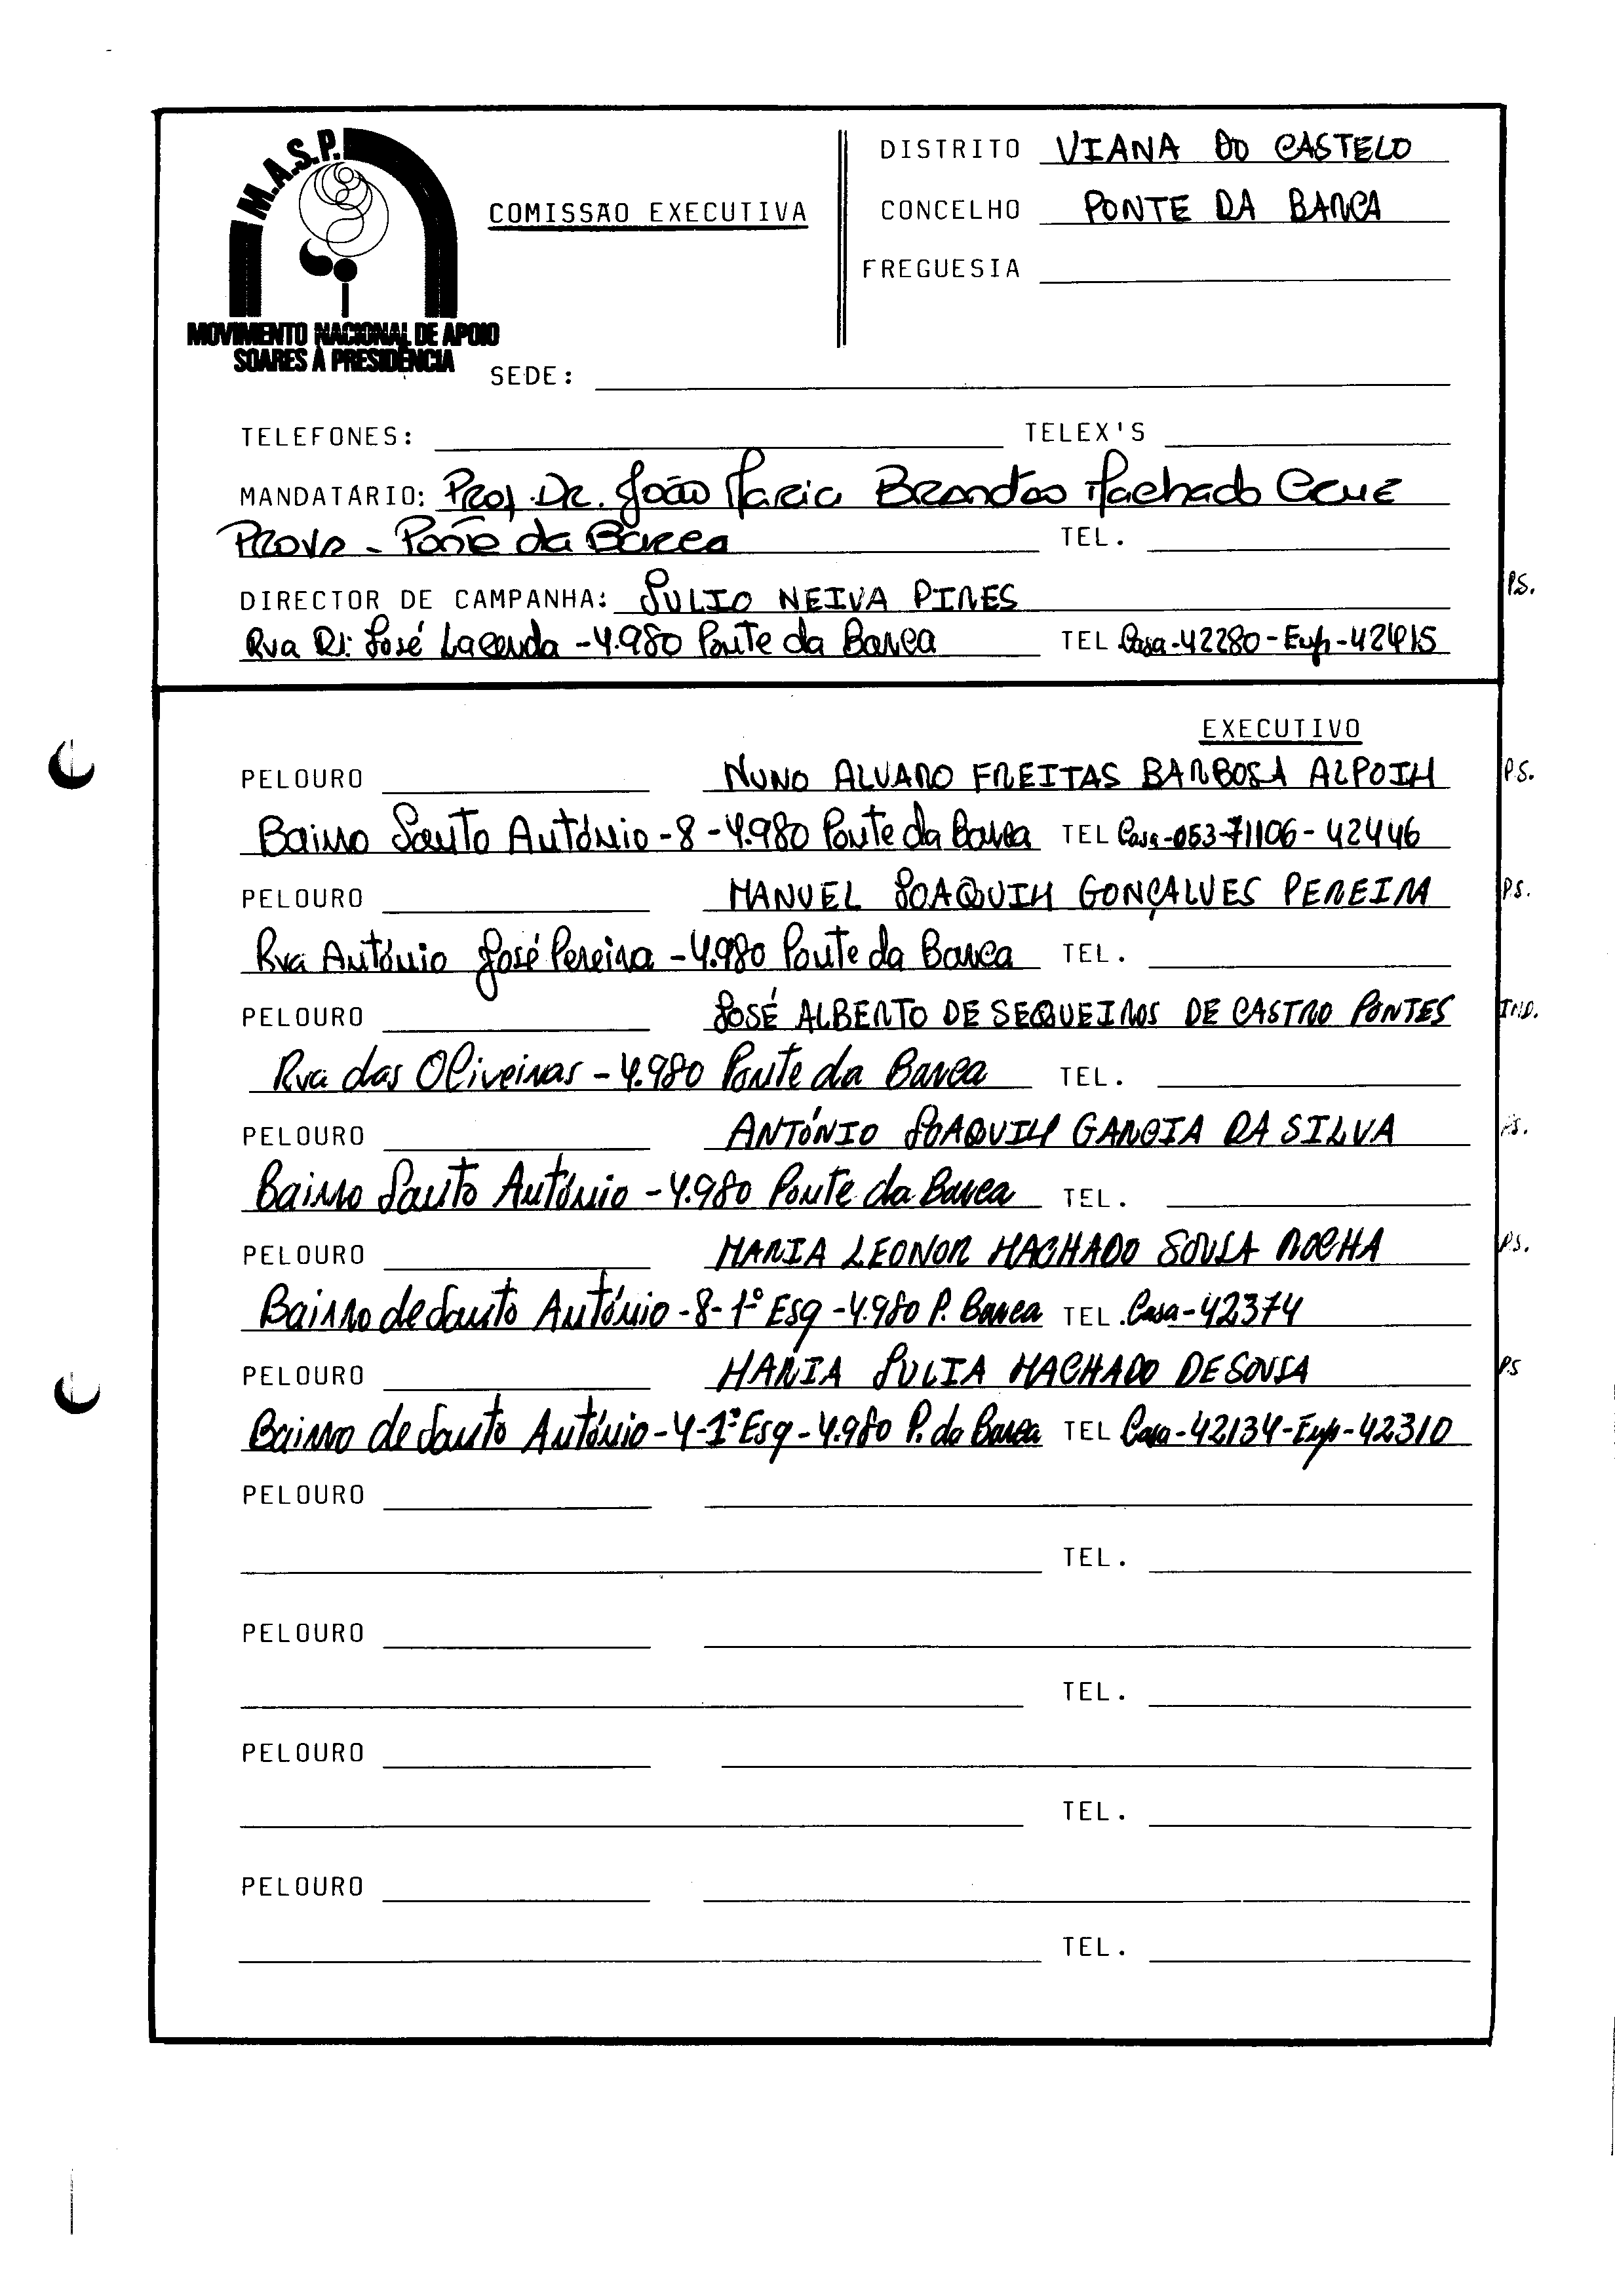 M.A.S.P.
MOVIMENTO NACIONAL DE APOIO
SOARES À PRESIDÊNCIA
COMISSÃO EXECUTIVA
DISTRITO VIANA DO CASTELO
CONCELHO PONTE DA BARCA
FREGUESIA
SEDE:
TELEFONES: TELEX'S
MANDATÁRIO: Prof. Dr. João Maria Brandão Machado Cruz
Prova - Ponte da Barca TEL.
DIRECTOR DE CAMPANHA: JULIO NEIVA PIRES P.S.
Rua Dr. José Lacerda - 4.980 Ponte da Barca TEL Casa-42280-Emp-42415
EXECUTIVO
PELOURO NUNO ALVARO FREITAS BARBOSA ALPOIM P.S.
Bairro Santo António - 8 - 4.980 Ponte da Barca TEL Casa-053-71106-42446
PELOURO MANUEL JOAQUIM GONÇALVES PEREIRA P.S.
Rua António José Pereira - 4.980 Ponte da Barca TEL.
PELOURO JOSÉ ALBERTO DE SEQUEIROS DE CASTRO PONTES IND.
Rua das Oliveiras - 4.980 Ponte da Barca TEL.
PELOURO ANTÓNIO JOAQUIM GARCIA DA SILVA P.S.
Bairro Santo António - 4.980 Ponte da Barca TEL.
PELOURO MARIA LEONOR MACHADO SOUSA ROCHA P.S.
Bairro de Santo António - 8 - 1º Esq - 4.980 P. Barca TEL. Casa-42374
PELOURO MARIA JULIA MACHADO DE SOUSA PS
Bairro de Santo António - 4 - 1º Esq - 4.980 P. da Barca TEL Casa-42134-Emp-42310
PELOURO
TEL.
PELOURO
TEL.
PELOURO
TEL.
PELOURO
TEL.